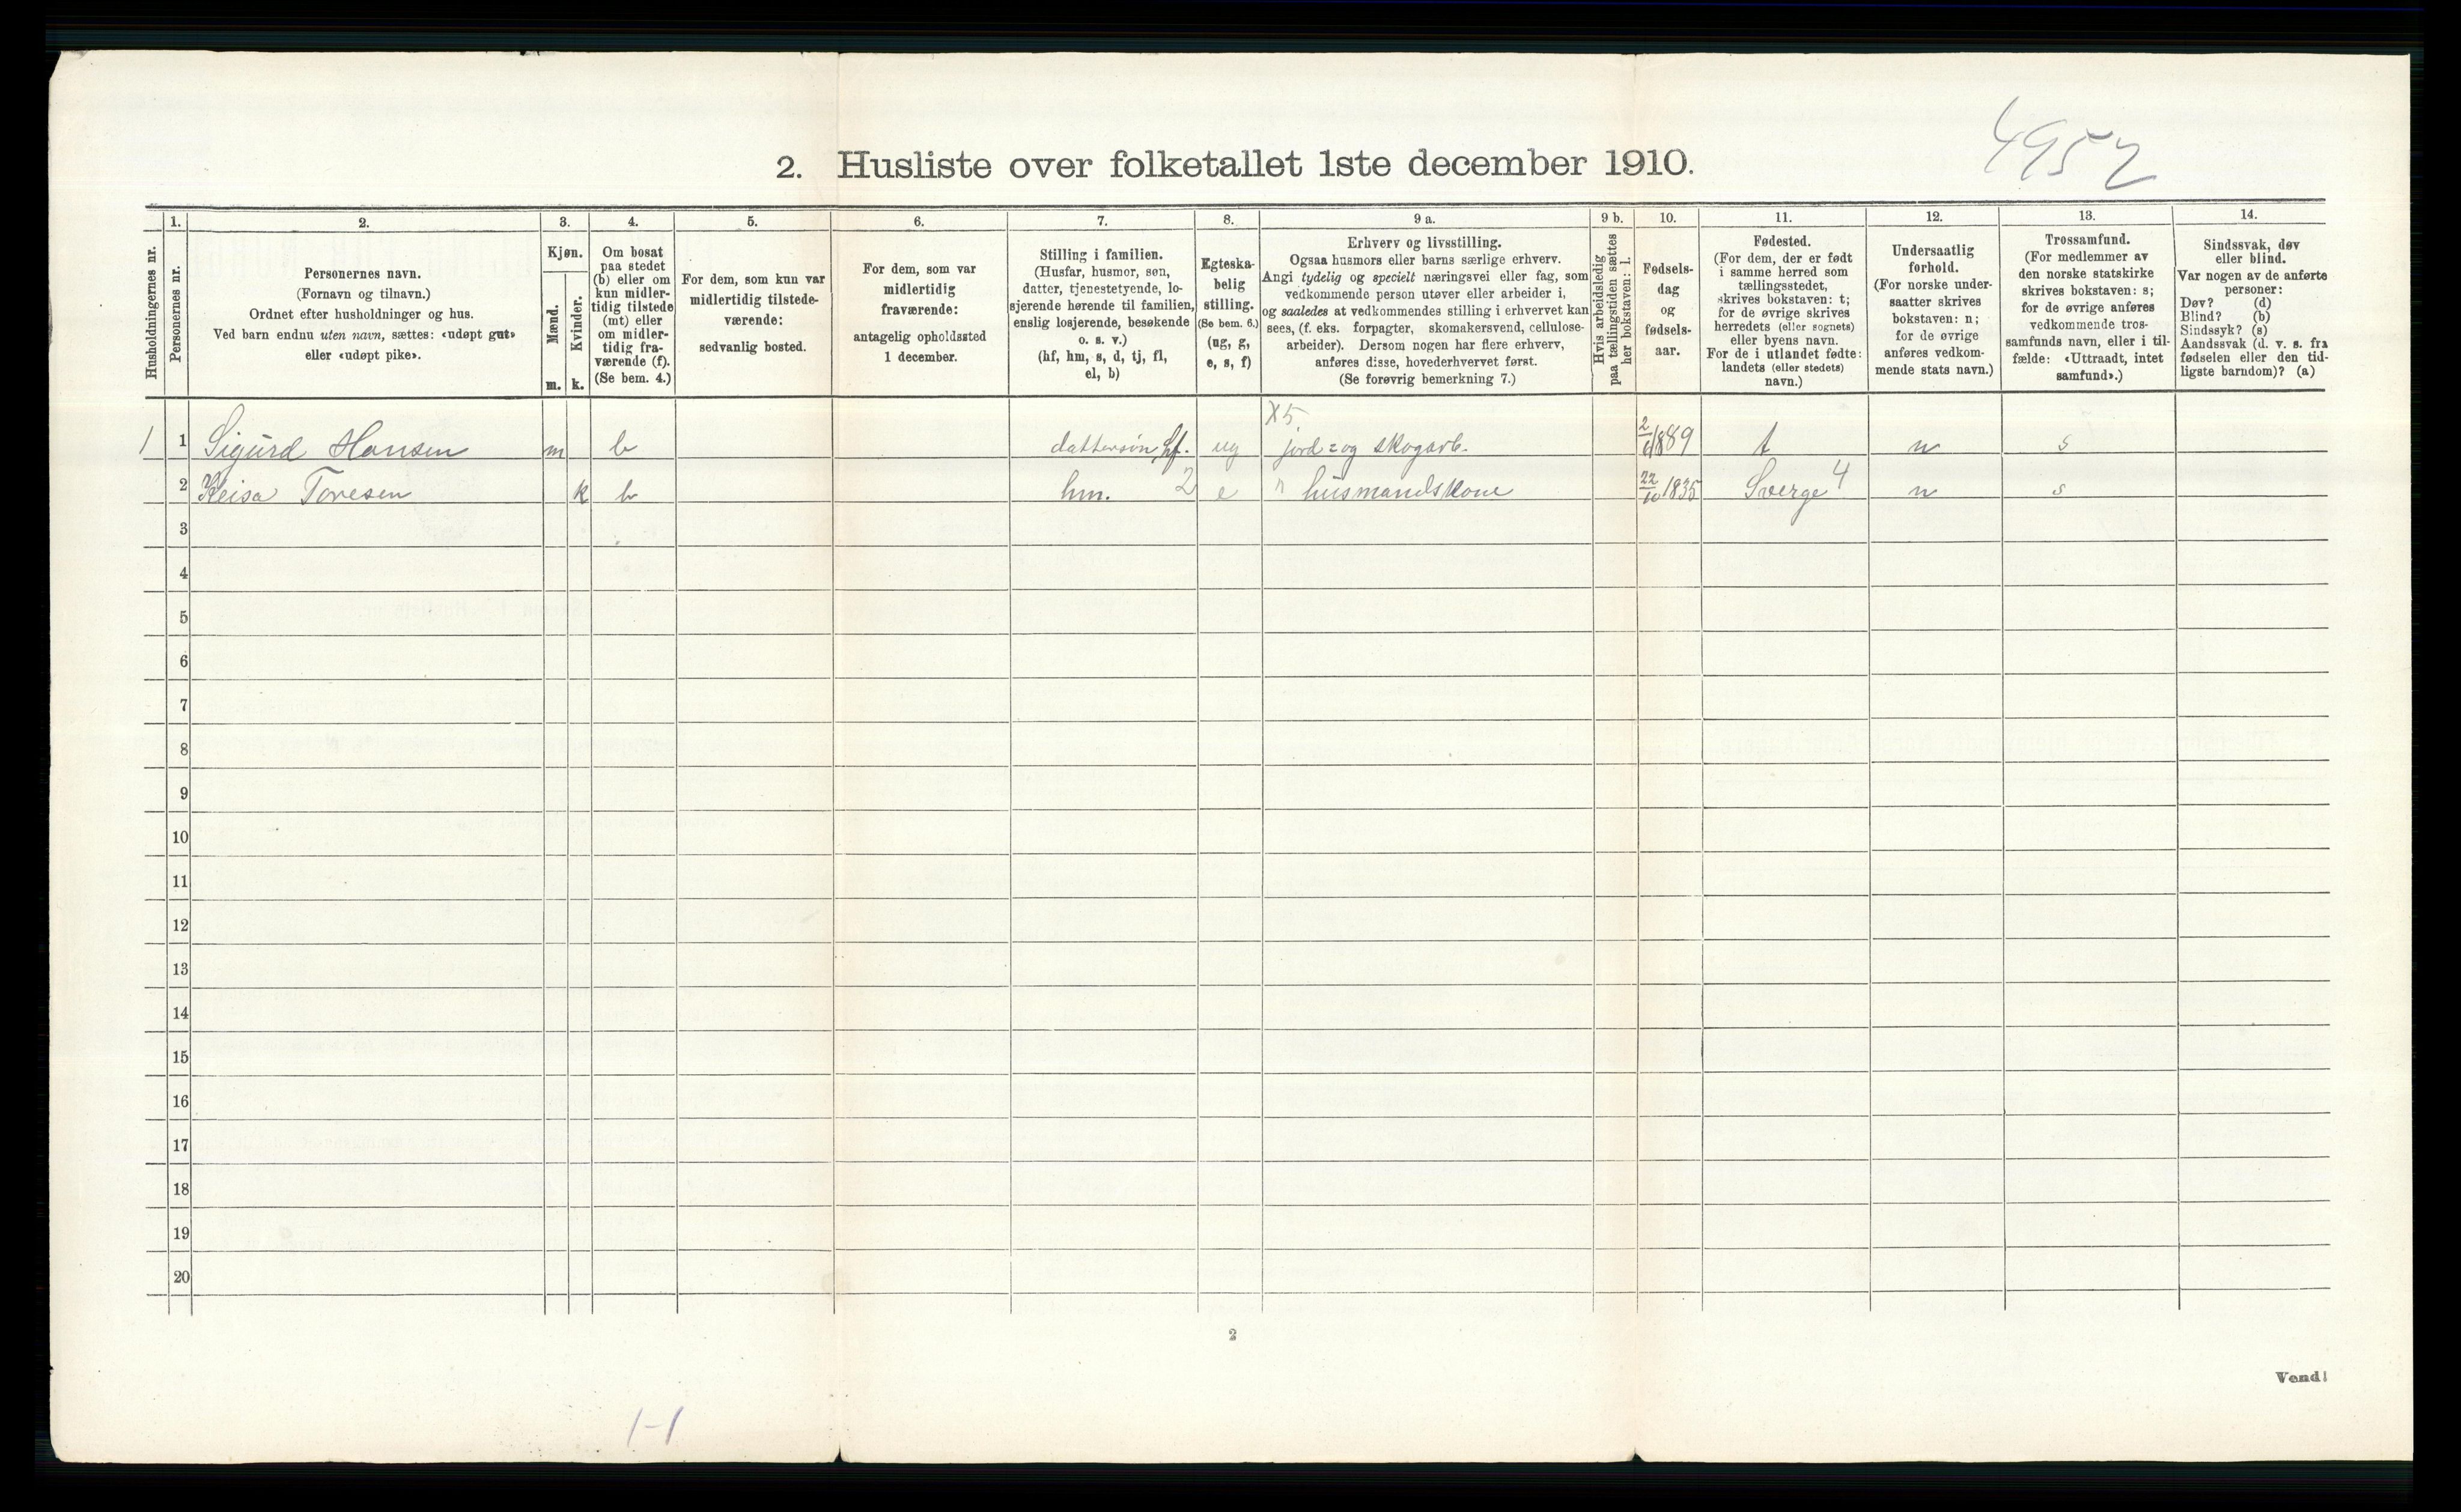 4952
2. Husliste over folketallet 1ste december 1910.
Husholdningernes nr.
1.
Personernes nr.
2.
Personernes navn.
(Fornavn og tilnavn.)
Ordnet efter husholdninger og hus.
Ved barn endnu uten navn, sættes: «udøpt gut»
eller «udøpt pike».
3.
Kjøn.
Mænd.
m.
Kvinder.
k.
4.
Om bosat
paa stedet
(b) eller om
kun midler-
tidig tilstede
(mt) eller
om midler-
tidig fra-
værende (f).
(Se bem. 4.)
5.
For dem, som kun var
midlertidig tilstede-
værende:
sedvanlig bosted.
6.
For dem, som var
midlertidig
fraværende:
antagelig opholdssted
1 december.
7.
Stilling i familien.
(Husfar, husmor, søn,
datter, tjenestetyende, lo-
sjerende hørende til familien,
enslig losjerende, besøkende
o. s. v.)
(hf, hm, s, d, tj, fl,
el, b)
8.
Egteska-
belig
stilling.
(Se bem. 6.)
(ug, g,
e, s, f)
9 a.
Erhverv og livsstilling.
Ogsaa husmors eller barns særlige erhverv.
Angi tydelig og specielt næringsvei eller fag, som
vedkommende person utøver eller arbeider i,
og saaledes at vedkommendes stilling i erhvervet kan
sees, (f. eks. forpagter, skomakersvend, cellulose-
arbeider). Dersom nogen har flere erhverv,
anføres disse, hovederhvervet først.
(Se forøvrig bemerkning 7.)
9 b.
Hvis arbeidsledig
paa tællingstiden sættes
her bokstaven: l.
10.
Fødsels-
dag
og
fødsels-
aar.
11.
Fødested.
(For dem, der er født
i samme herred som
tællingsstedet,
skrives bokstaven: t;
for de øvrige skrives
herredets (eller sognets)
eller byens navn.
For de i utlandet fødte:
landets (eller stedets)
navn.)
12.
Undersaatlig
forhold.
(For norske under-
saatter skrives
bokstaven: n;
for de øvrige
anføres vedkom-
mende stats navn.)
13.
Trossamfund.
(For medlemmer av
den norske statskirke
skrives bokstaven: s;
for de øvrige anføres
vedkommende tros-
samfunds navn, eller i til-
fælde: «Uttraadt, intet
samfund».)
14.
Sindssvak, døv
eller blind.
Var nogen av de anførte
personer:
Døv? (d)
Blind? (b)
Sindssyk? (s)
Aandssvak (d. v. s. fra
fødselen eller den tid-
ligste barndom)? (a)
X5.
1 1 Sigurd Hansen m b dattersøn hf. ug jord= og skogarb. 2/6 1889 t n s
2 Keisa Toresen k b hm. 2 e " husmandskone 22/10 1835 Sverge 4 n s
3
4
5
6
7
8
9
10
11
12
13
14
15
16
17
18
19
20
2
Vend!
1-1